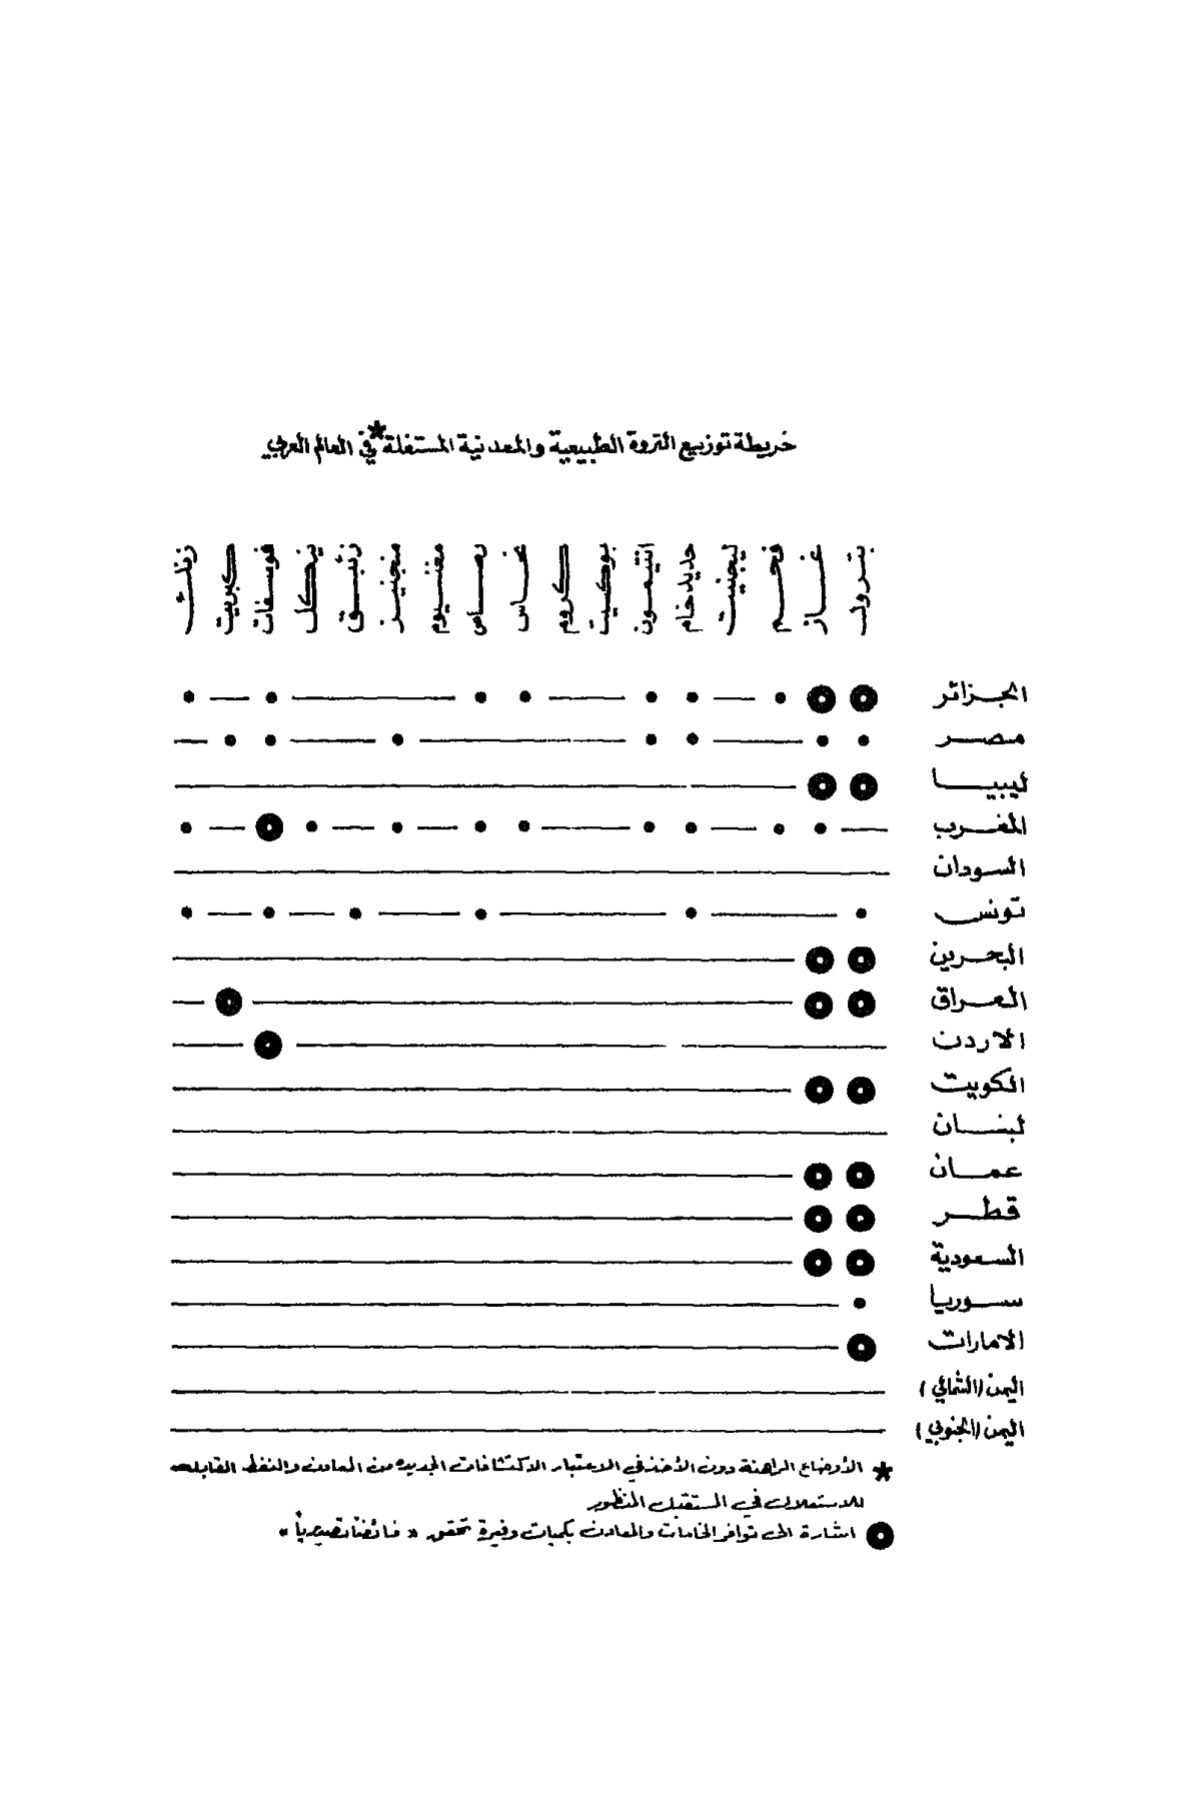 خريطة توزيع الثروة الطبيعية والمعدنية المستغلة * في العالم العربي
بترول غاز فحم ليجنيت حديد خام انتيمون بوكسيت كروم نحاس رصاص مغنسيوم منجنيز زئبق نيكل فوسفات كبريت زنك
الجزائر
مصر
ليبيا
المغرب
السودان
تونس
البحرين
العراق
الاردن
الكويت
لبنان
عمان
قطر
السعودية
سوريا
الامارات
اليمن (الشمالي)
اليمن (الجنوبي)
* الأوضاع الراهنة دون الأخذ في الاعتبار الاكتشافات الجديده من المعادن والنفط القابله
للاستغلال في المستقبل المنظور
اشارة الى توافر الخامات والمعادن بكميات وفيرة تحقق « فائضا تصديرياً »